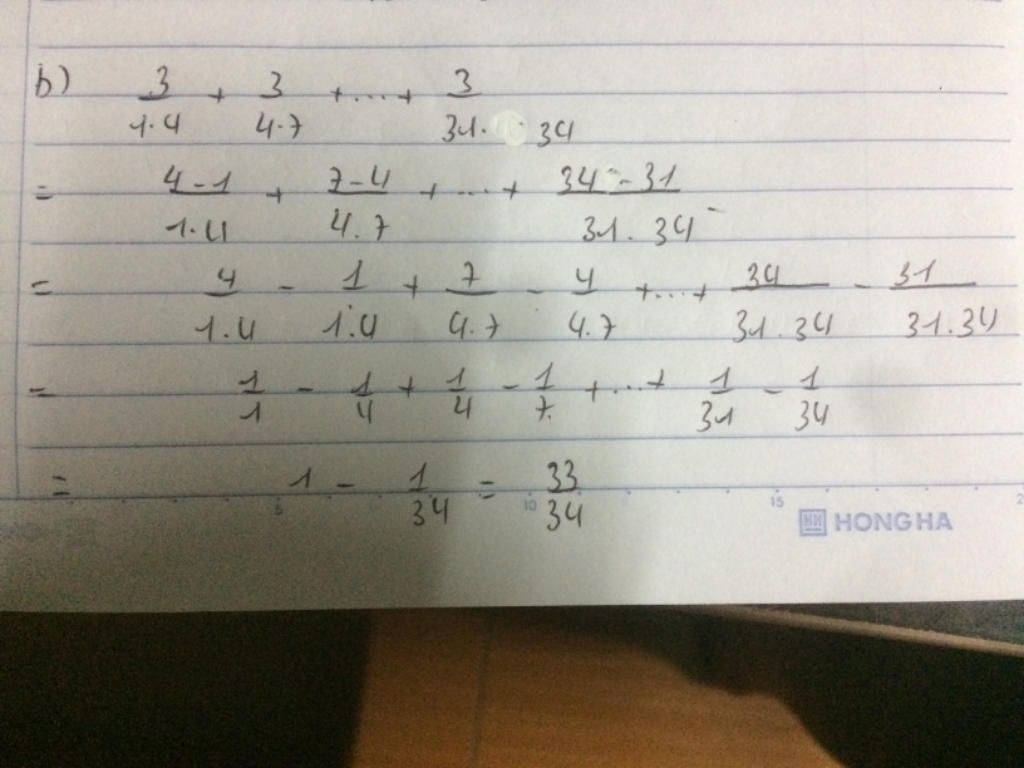 b) 3/1.4 + 3/4.7 + ... + 3/31.34
= 4-1/1.4 + 7-4/4.7 + ... + 34-31/31.34
= 4/1.4 - 1/1.4 + 7/4.7 - 4/4.7 + ... + 34/31.34 - 31/31.34
= 1/1 - 1/4 + 1/4 - 1/7 + ... + 1/31 - 1/34
= 1 - 1/34 = 33/34
5 10 15 2
HONG HA